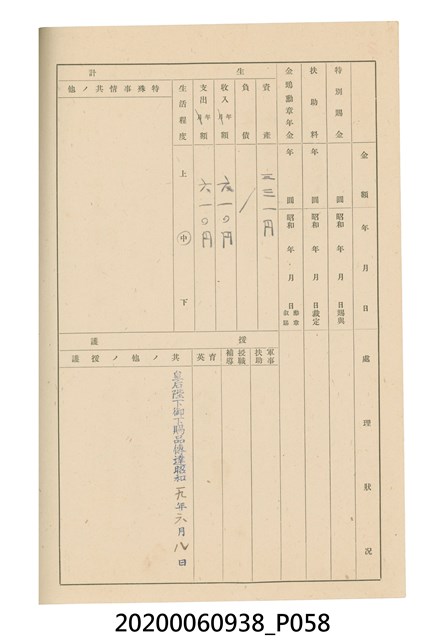 金額 年月日 處理狀況
特別賜金 圓 昭和 年 月 日賜與
扶助料 年 圓 昭和 年 月 日裁定
金鵄勳章年金 年 圓 昭和 年 月 日
生計
資產 三三一円
負債
收入年月額 六一〇円
支出年月額 六一〇円
生活程度 上 中 下
特殊事情其ノ他
援護
軍事扶助
授職補導
育英
其ノ他ノ援護
皇后陛下御下賜品傳達昭和一九年六月八日
20200060938_P058